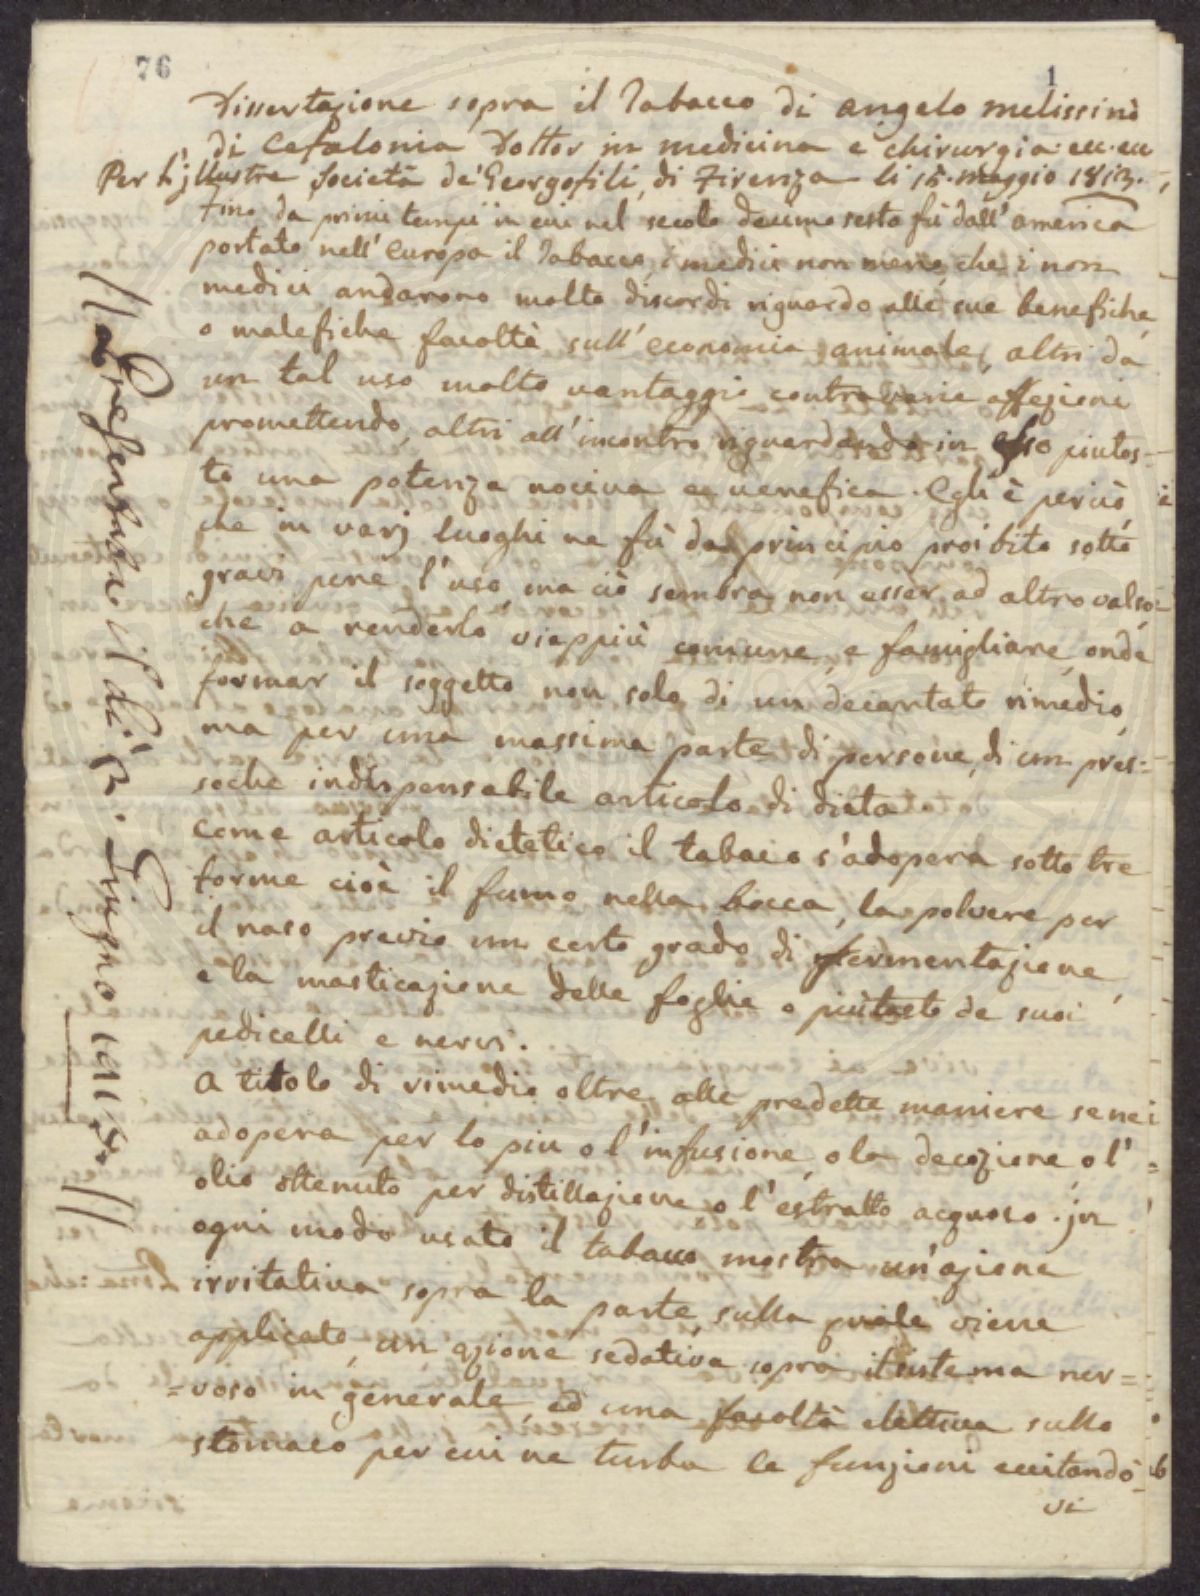 76
1
Dissertazione sopra il Tabacco di Angelo Melissinò
di Cefalonia Dottor in medicina e chirurgia ecc. ecc
Per l'jllustre Società de' Georgofili di Firenza li 15. maggio 1813.
Fino da primi tempi in cui nel secolo decimo sesto fù dall'america
portato nell'Europa il Tabacco, i medici non meno, che i non
medici andarono molto discordi riguardo alle sue benefiche,
o malefiche facoltà sull'economia animale, altri da
un tal uso molto vantaggio contro varie affezioni
promettendo, altri all'incontro riguardando in esso piutos=
to una potenza nociva e venefica. Egli è perciò,
che in varj luoghi ne fù da principio proibito sotto
gravi pene l'uso, ma ciò sembra non esser ad altro valso,
che a renderlo vieppiù comune, e famigliare, onde
formar il soggetto non solo di un decantato rimedio,
ma per una massima parte di persone, di un pres=
soche indispensabile articolo di dieta
Come articolo dietetico il tabaco s'adopera sotto tre
forme cioè il fumo nella bocca, la polvere per
il naso previo un certo grado di fermentazione,
e la masticazione delle foglie o piùtosto de suoi
pedicelli e nervi.
A titolo di rimedio oltre alle predette maniere se nei
adopera per lo piu o l'infusione, o la decozione, o l'
olio ottenuto per distillazione o l'estratto acquoso. jn
ogni modo usato il tabacco mostra un'azione
irritativa sopra la parte, sulla quale viene
applicato, un azione sedativa sopra il sistema ner=
=voso in generale, ed una facoltà elettiva sullo
stomaco per cui ne turba le funzioni eccitando
vi
// Presentata il dì 3. Giugno 1813. //